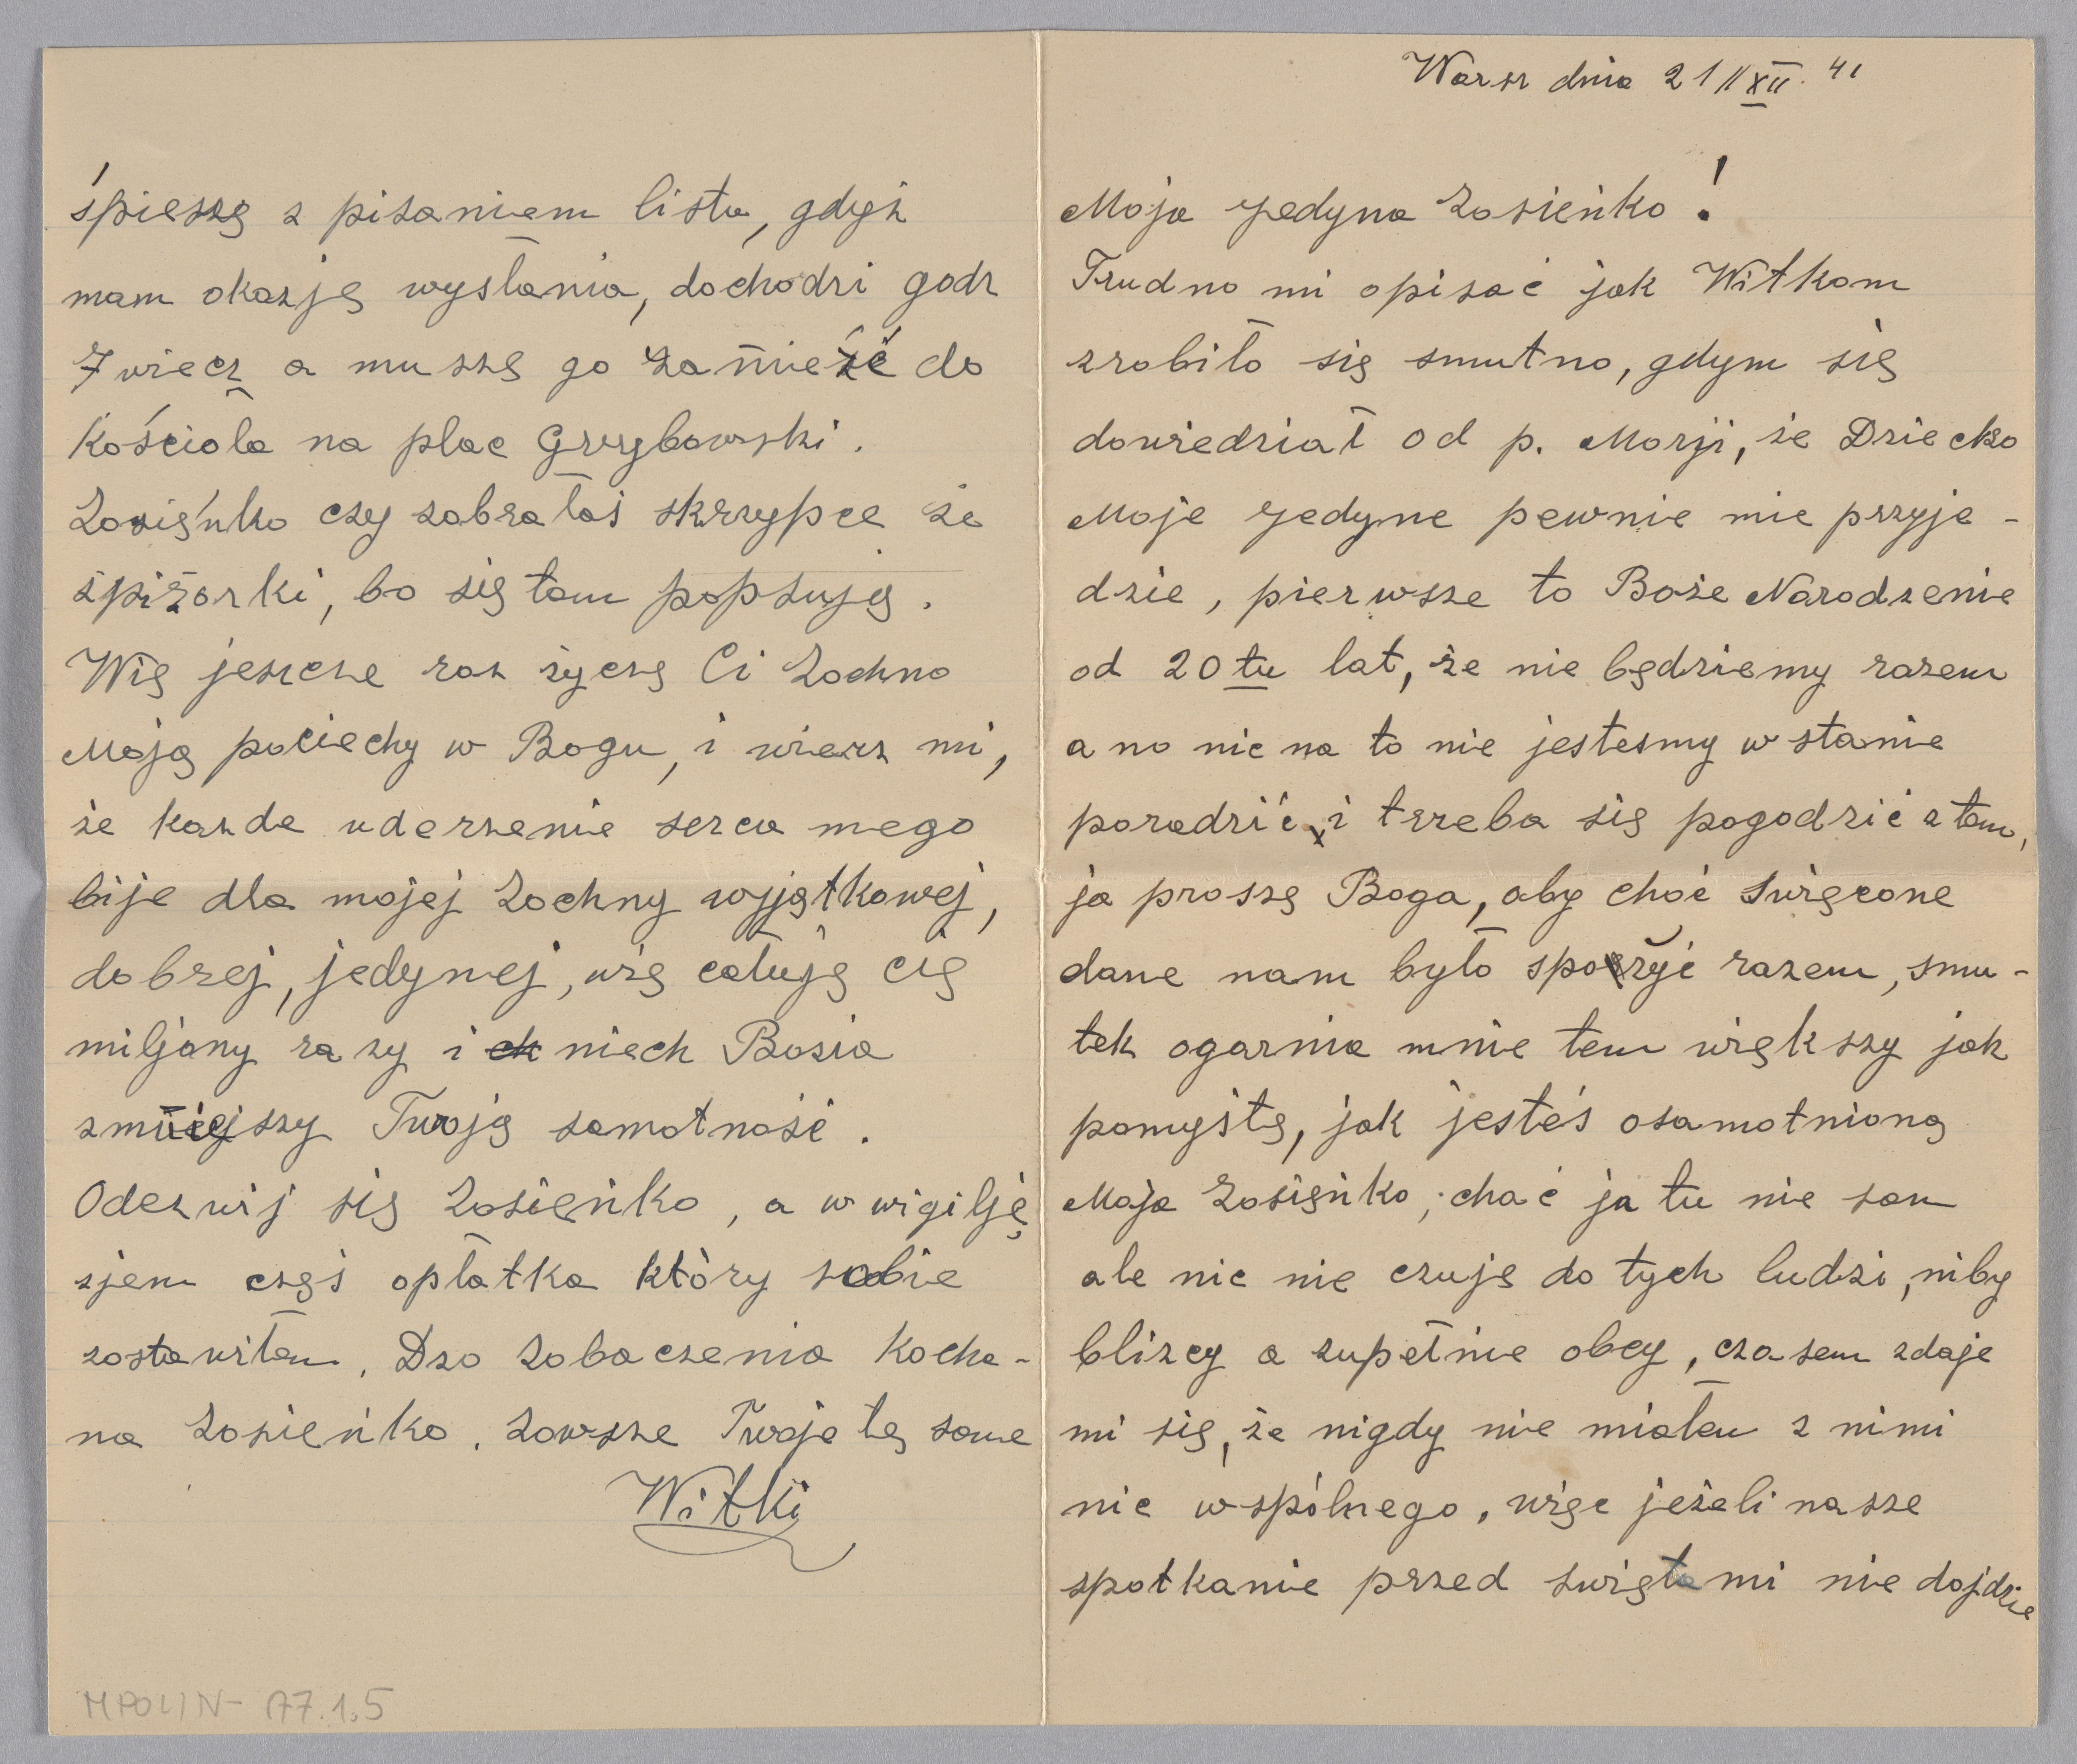 Warsz dnia 21 // XII. 41
Moja Jedyna Zosieńko!
Trudno mi opisać jak Witkom
zrobiło się smutno, gdym się
dowiedział od p. Marji, że Dziecko
Moje Jedyne pewnie nie przyje-
dzie, pierwsze to Boże Narodzenie
od 20tu lat, że nie będziemy razem
a no nic na to nie jestesmy w stanie
poradzić i trzeba się pogodzić z tem,
ja proszę Boga, aby choć święcone
dane nam było spożyć razem, smu-
tek ogarnia mnie tem większy jak
pomyślę, jak jesteś osamotnioną
Moja Zosieńko, choć ja tu nie sam
ale nic nie czuje do tych ludzi, niby
blizcy a zupełnie obcy, czasem zdaje
mi się, że nigdy nie miałem z nimi
nic wspólnego, więc jeżeli nasze
spotkanie przed świętami nie dojdzie
śpieszę z pisaniem listu, gdyż
mam okazję wysłania, dochodzi godz
7 wiecz a muszę go zanieść do
Kościoła na plac Grzybowski.
Zosieńko czy zabrałaś skrzypce ze
śpiżarki, bo się tam popsują.
Wię jeszcze raz życzę Ci Zochno
Moją pociechy w Bogu, i wierz mi,
że kazde uderzenie serca mego
bije dla mojej Zochny wyjątkowej,
dobrej, jedynej, wię całuję cię
miljony razy i ch niech Bozia
zmniejszy Twoją samotność.
Odezwij się Zosieńko, a w wigilję
zjem część opłatka który sobie
zostawiłem. Dzo Zobaczenia Kocha-
na Zosieńko. Zawsze Twoje te same
Witki
MPOLIN - A7.1.5